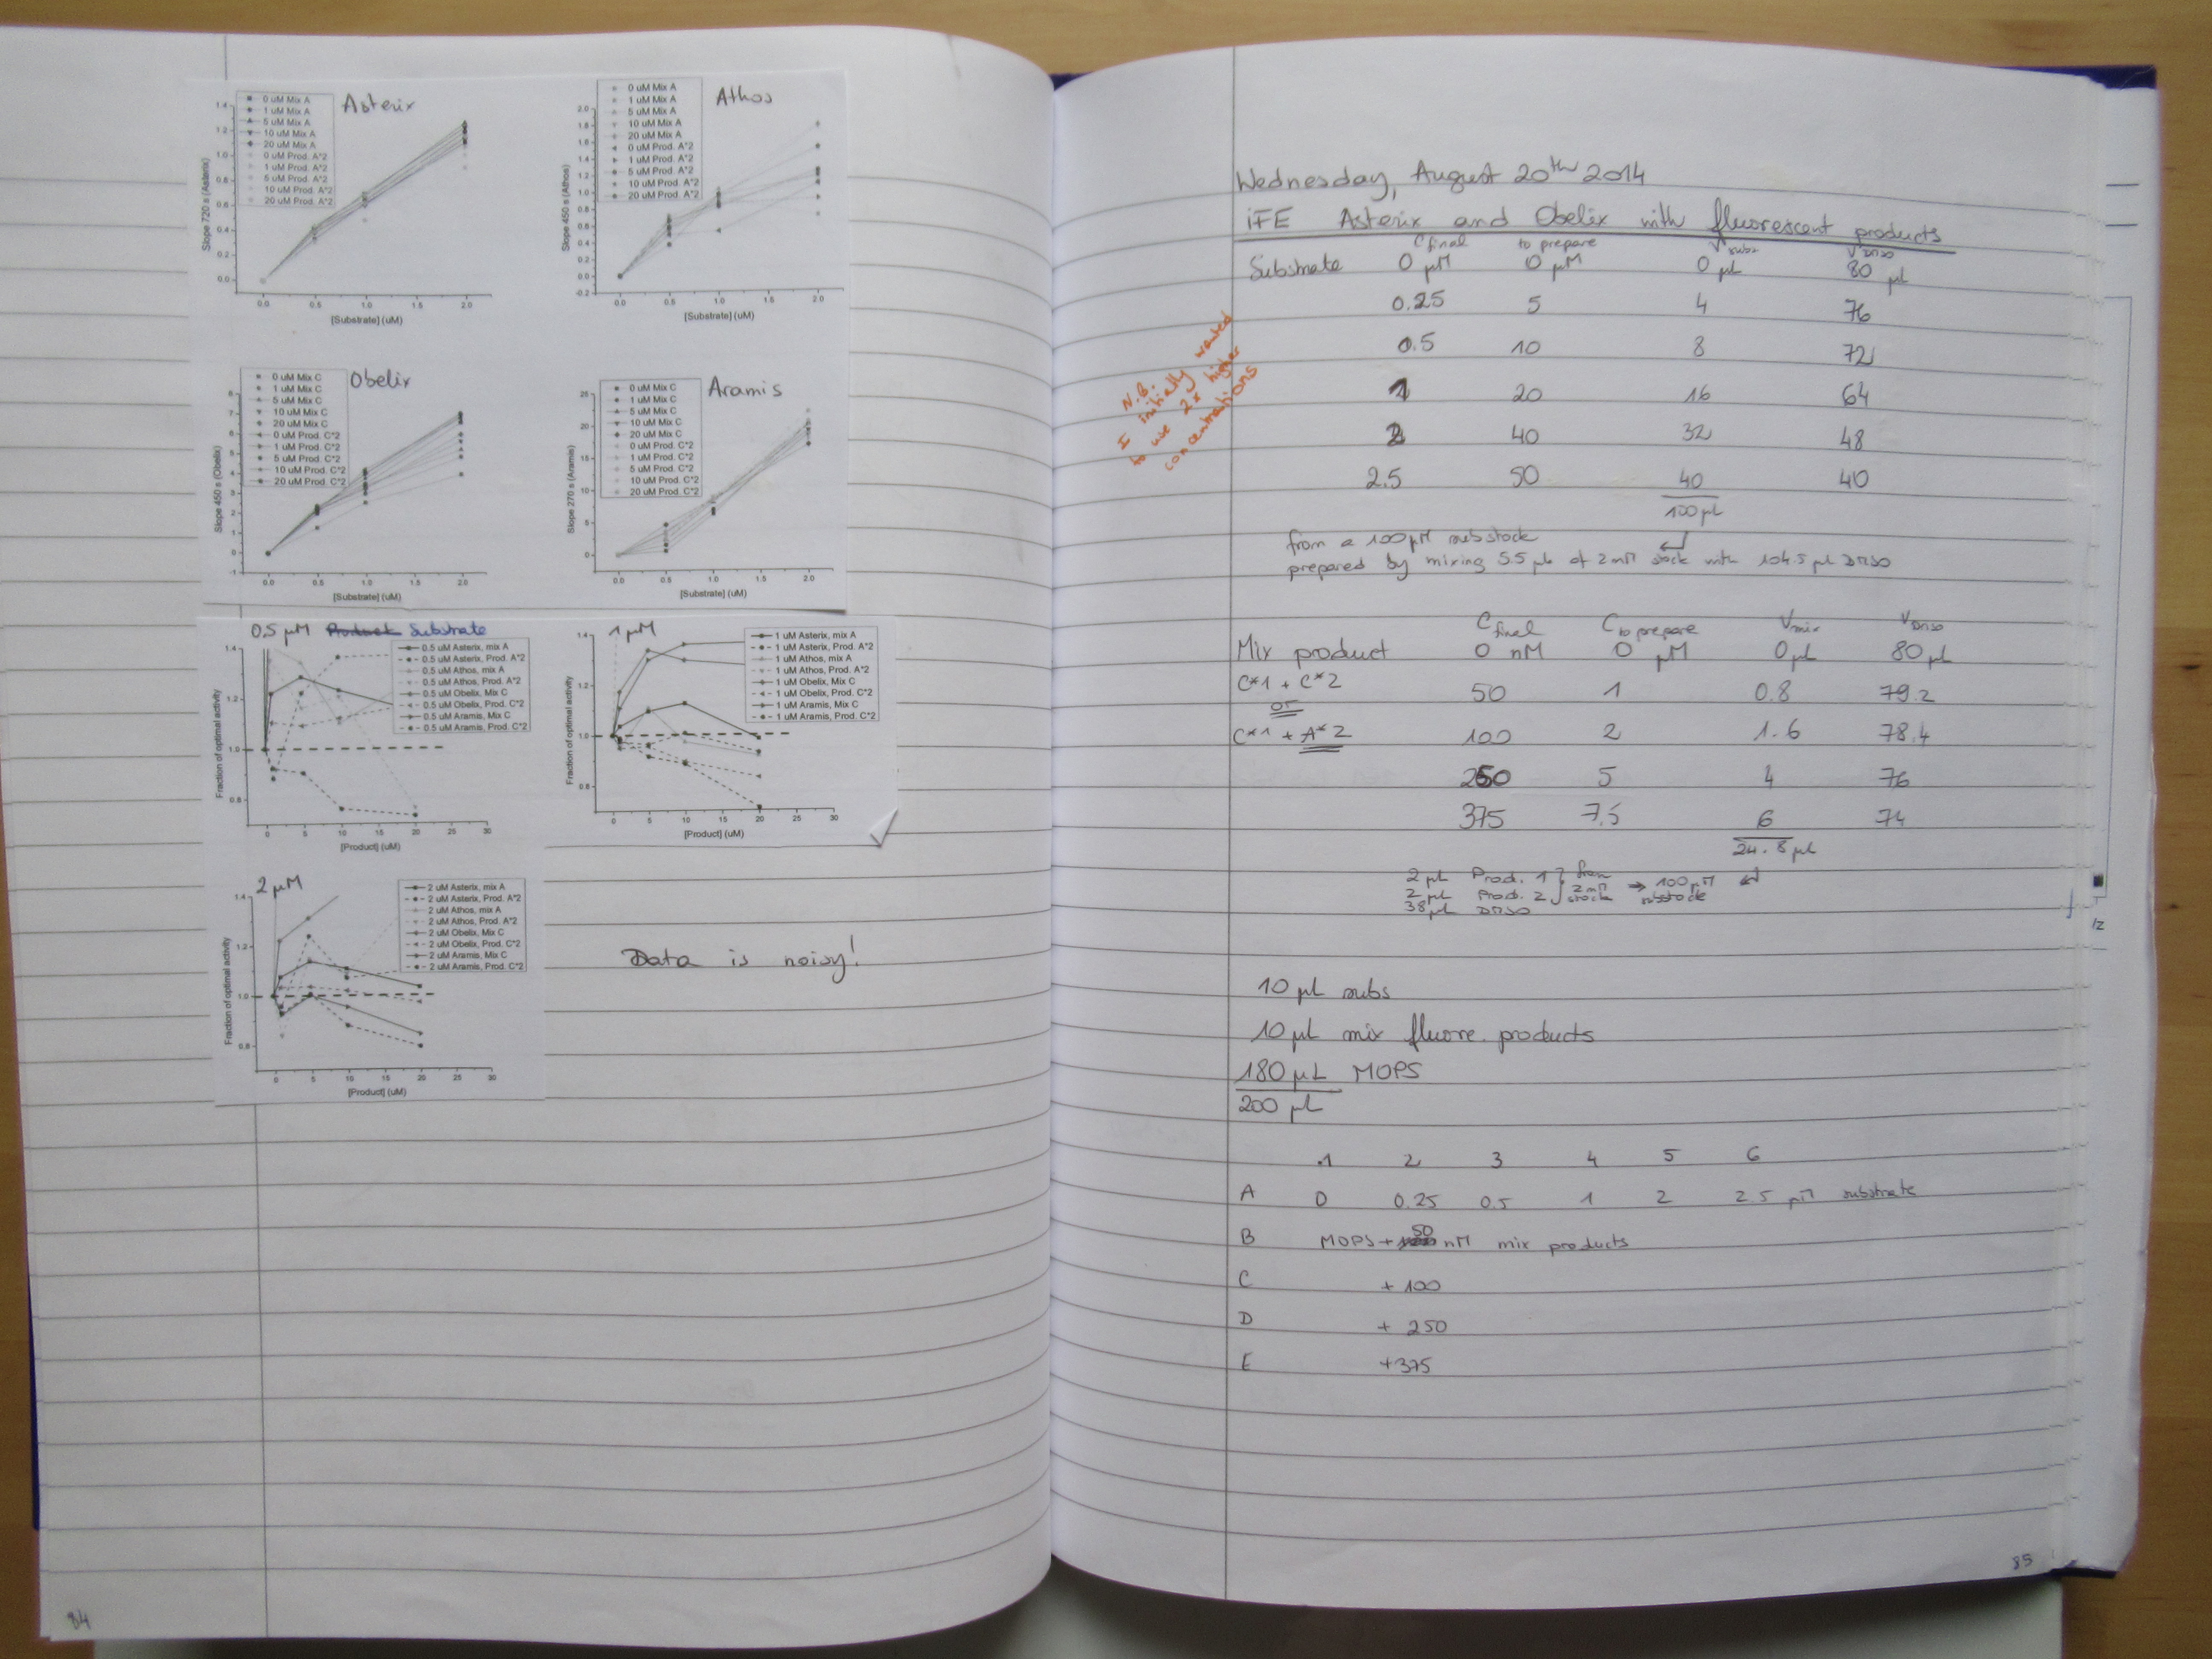 Asterix
0 uM Mix A
1 uM Mix A
5 uM Mix A
10 uM Mix A
20 uM Mix A
0 uM Prod. A*2
1 uM Prod. A*2
5 uM Prod. A*2
10 uM Prod. A*2
20 uM Prod. A*2
Slope 720 s (Asterix)
1.4
1.2
1.0
0.8
0.6
0.4
0.2
0.0
0.0 0.5 1.0 1.5 2.0
[Substrate] (uM)
Athos
0 uM Mix A
1 uM Mix A
5 uM Mix A
10 uM Mix A
20 uM Mix A
0 uM Prod. A*2
1 uM Prod. A*2
5 uM Prod. A*2
10 uM Prod. A*2
20 uM Prod. A*2
Slope 450 s (Athos)
2.0
1.8
1.6
1.4
1.2
1.0
0.8
0.6
0.4
0.2
0.0
-0.2
0.0 0.5 1.0 1.5 2.0
[Substrate] (uM)
Obelix
0 uM Mix C
1 uM Mix C
5 uM Mix C
10 uM Mix C
20 uM Mix C
0 uM Prod. C*2
1 uM Prod. C*2
5 uM Prod. C*2
10 uM Prod. C*2
20 uM Prod. C*2
Slope 450 s (Obelix)
8
7
6
5
4
3
2
1
0
-1
0.0 0.5 1.0 1.5 2.0
[Substrate] (uM)
Aramis
0 uM Mix C
1 uM Mix C
5 uM Mix C
10 uM Mix C
20 uM Mix C
0 uM Prod. C*2
1 uM Prod. C*2
5 uM Prod. C*2
10 uM Prod. C*2
20 uM Prod. C*2
Slope 270 s (Aramis)
25
20
15
10
5
0
0.0 0.5 1.0 1.5 2.0
[Substrate] (uM)
0.5 µM Product Substrate
0.5 uM Asterix, mix A
0.5 uM Asterix, Prod. A*2
0.5 uM Athos, mix A
0.5 uM Athos, Prod. A*2
0.5 uM Obelix, Mix C
0.5 uM Obelix, Prod. C*2
0.5 uM Aramis, Mix C
0.5 uM Aramis, Prod. C*2
Fraction of optimal activity
1.4
1.2
1.0
0.8
0 5 10 15 20 25 30
[Product] (uM)
1 µM
1 uM Asterix, mix A
1 uM Asterix, Prod. A*2
1 uM Athos, mix A
1 uM Athos, Prod. A*2
1 uM Obelix, Mix C
1 uM Obelix, Prod. C*2
1 uM Aramis, Mix C
1 uM Aramis, Prod. C*2
Fraction of optimal activity
1.4
1.2
1.0
0.8
0 5 10 15 20 25 30
[Product] (uM)
2 µM
2 uM Asterix, mix A
2 uM Asterix, Prod. A*2
2 uM Athos, mix A
2 uM Athos, Prod. A*2
2 uM Obelix, Mix C
2 uM Obelix, Prod. C*2
2 uM Aramis, Mix C
2 uM Aramis, Prod. C*2
Fraction of optimal activity
1.4
1.2
1.0
0.8
0 5 10 15 20 25 30
[Product] (uM)
Data is noisy!
84
Wednesday, August 20th 2014
iFE Asterix and Obelix with fluorescent products
Cfinal to prepare Vsubs VDMSO
Substrate 0 µM 0 µM 0 µL 80 µL
0.25 5 4 76
0.5 10 8 72
1 20 16 64
2 40 32 48
2.5 50 40 40
100 µL
N.B.
I initially wanted
to use 2x higher
concentrations
from a 100 µM substock
prepared by mixing 5.5 µL of 2 mM stock with 104.5 µL DMSO
Cfinal Cto prepare Vmix VDMSO
Mix product 0 nM 0 µM 0 µL 80 µL
C*1 + C*2 50 1 0.8 79.2
or
C*1 + A*2 100 2 1.6 78.4
250 5 4 76
375 7.5 6 74
24.8 µL
2 µL Prod. 1 } from
2 µL Prod. 2 } 2 mM stock → 100 µM substock
38 µL DMSO
10 µL subs
10 µL mix fluore. products
180 µL MOPS
200 µL
1 2 3 4 5 6
A 0 0.25 0.5 1 2 2.5 µM substrate
B MOPS + 50 nM mix products
C + 100
D + 250
E +375
85
12